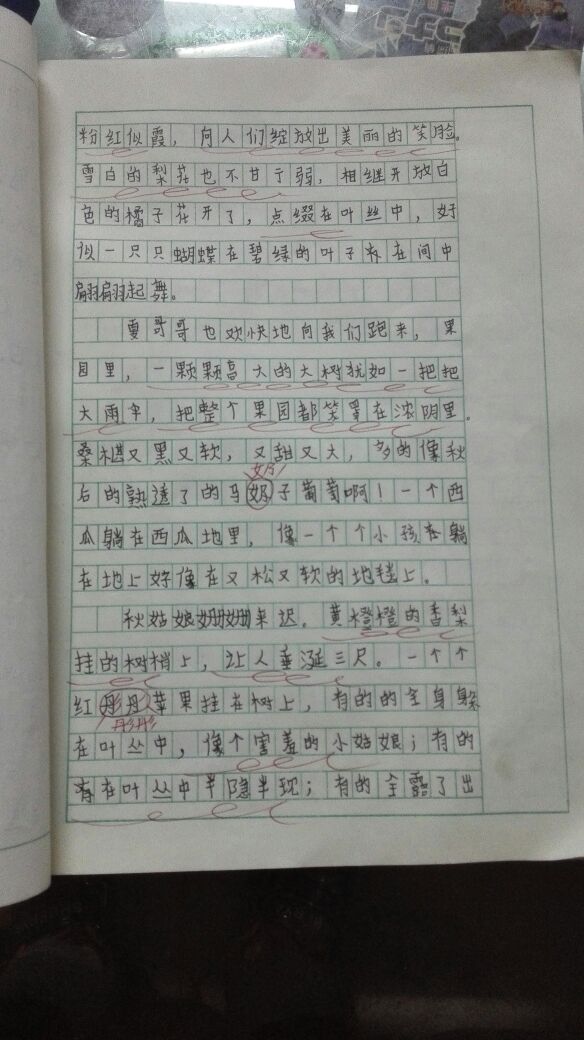 粉红似霞，向人们绽放出美丽的笑脸。
雪白的梨花也不甘于弱，相继开放白
色的橘子花开了，点缀在叶丝中，好
似一只只蝴蝶在碧绿的叶子存在间中
翩翩起舞。
夏哥哥也欢快地向我们跑来，果
园里，一颗颗高大的大树犹如一把把
大雨伞，把整个果园都笑罩在浓阴里。
桑椹又黑又软，又甜又大，多的像秋
后的熟透了的马奶子葡萄啊！一个西
奶
瓜躺在西瓜地里，像一个个小孩在躺
在地上好像在又松又软的地毯上。
秋姑娘姗姗来迟。黄橙橙的香梨
挂的树梢上，让人垂涎三尺。一个个
红彤彤苹果挂在树上，有的的全身躲
彤彤
在叶丛中，像个害羞的小姑娘；有的
存在叶丛中半隐半现；有的全露了出